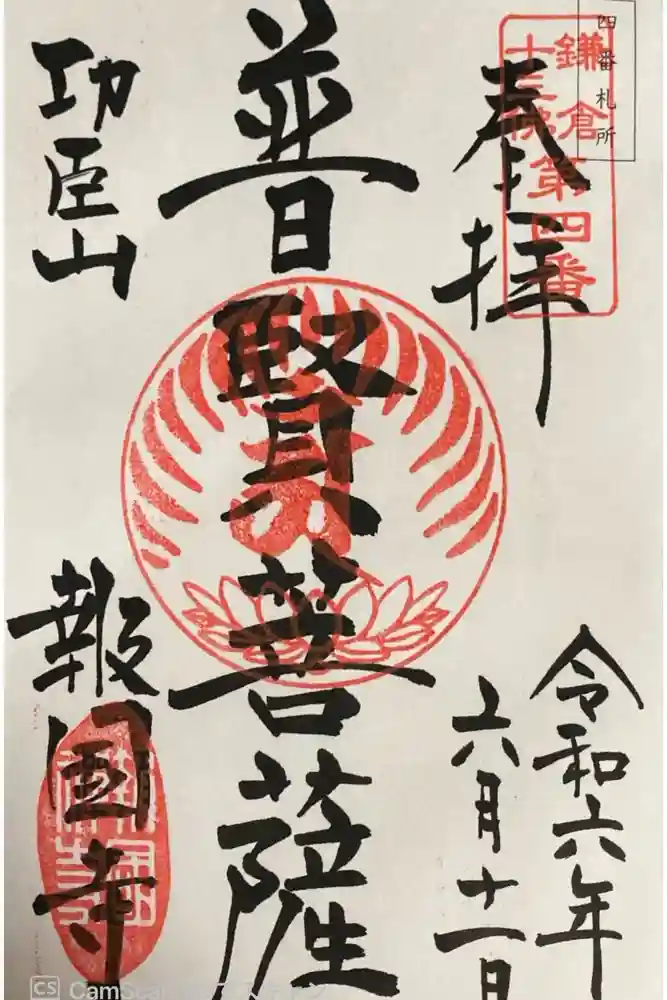 四番札所
鎌倉
十三佛第四番
奉拝
令和六年
六月十一日
普賢菩薩
功臣山
報国寺
CS CamScanner